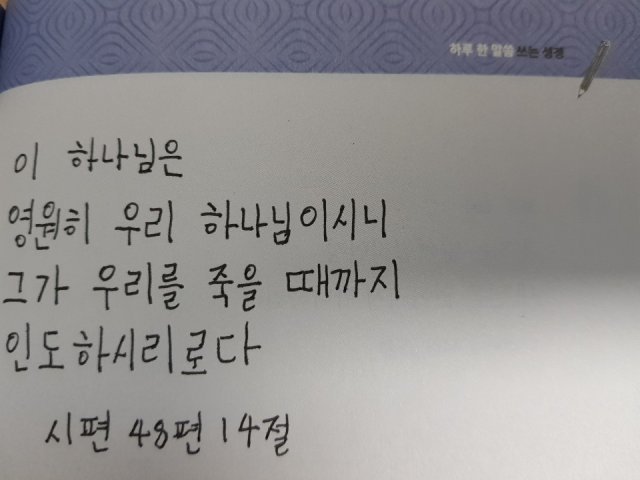 하루 한 말씀 쓰는 성경
이 하나님은
영원히 우리 하나님이시니
그가 우리를 죽을 때까지
인도하시리로다
시편 48편 14절